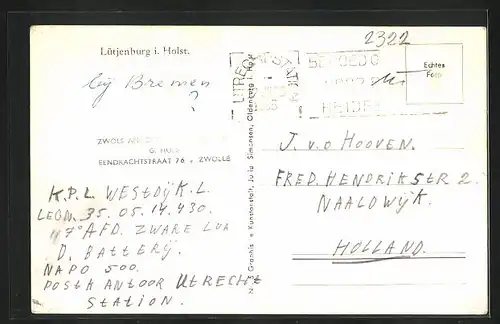 2322
Lütjenburg i. Holst.
bij Bremen
?
UTRECHT STATION
Echtes
Foto
ZWOLS
EENDRACHTSTRAAT 76 - ZWOLLE
K.P.L WESTDIJK. L.
LEGN. 35. 05. 14. 430.
117e AFD. ZWARE LUA
D. BATTERIJ.
NAPO 500.
POSTKANTOOR UTRECHT
STATION.
Kunstanstalt, Julius Simonsen, Oldenburg i. Holst.
J. v.d HOOVEN.
FRED. HENDRIKSTR 2.
NAALDWIJK.
HOLLAND.